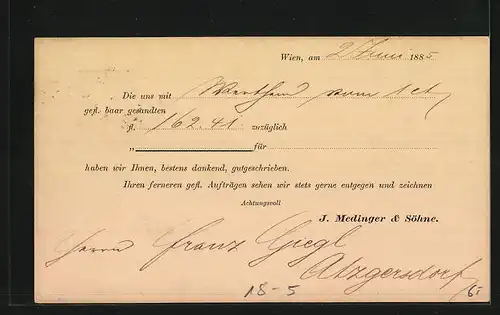 Wien, am 2 Juni 1885
Die uns mit Werthsend vom 1 ct
gefl. baar gesandten
fl. 162.41 zuzüglich
„ für
haben wir Ihnen, bestens dankend, gutgeschrieben.
Ihren ferneren gefl. Aufträgen sehen wir stets gerne entgegen und zeichnen
Achtungsvoll
J. Medinger & Söhne.
Herrn Franz Giegl
Atzgersdorf
18-5
6-